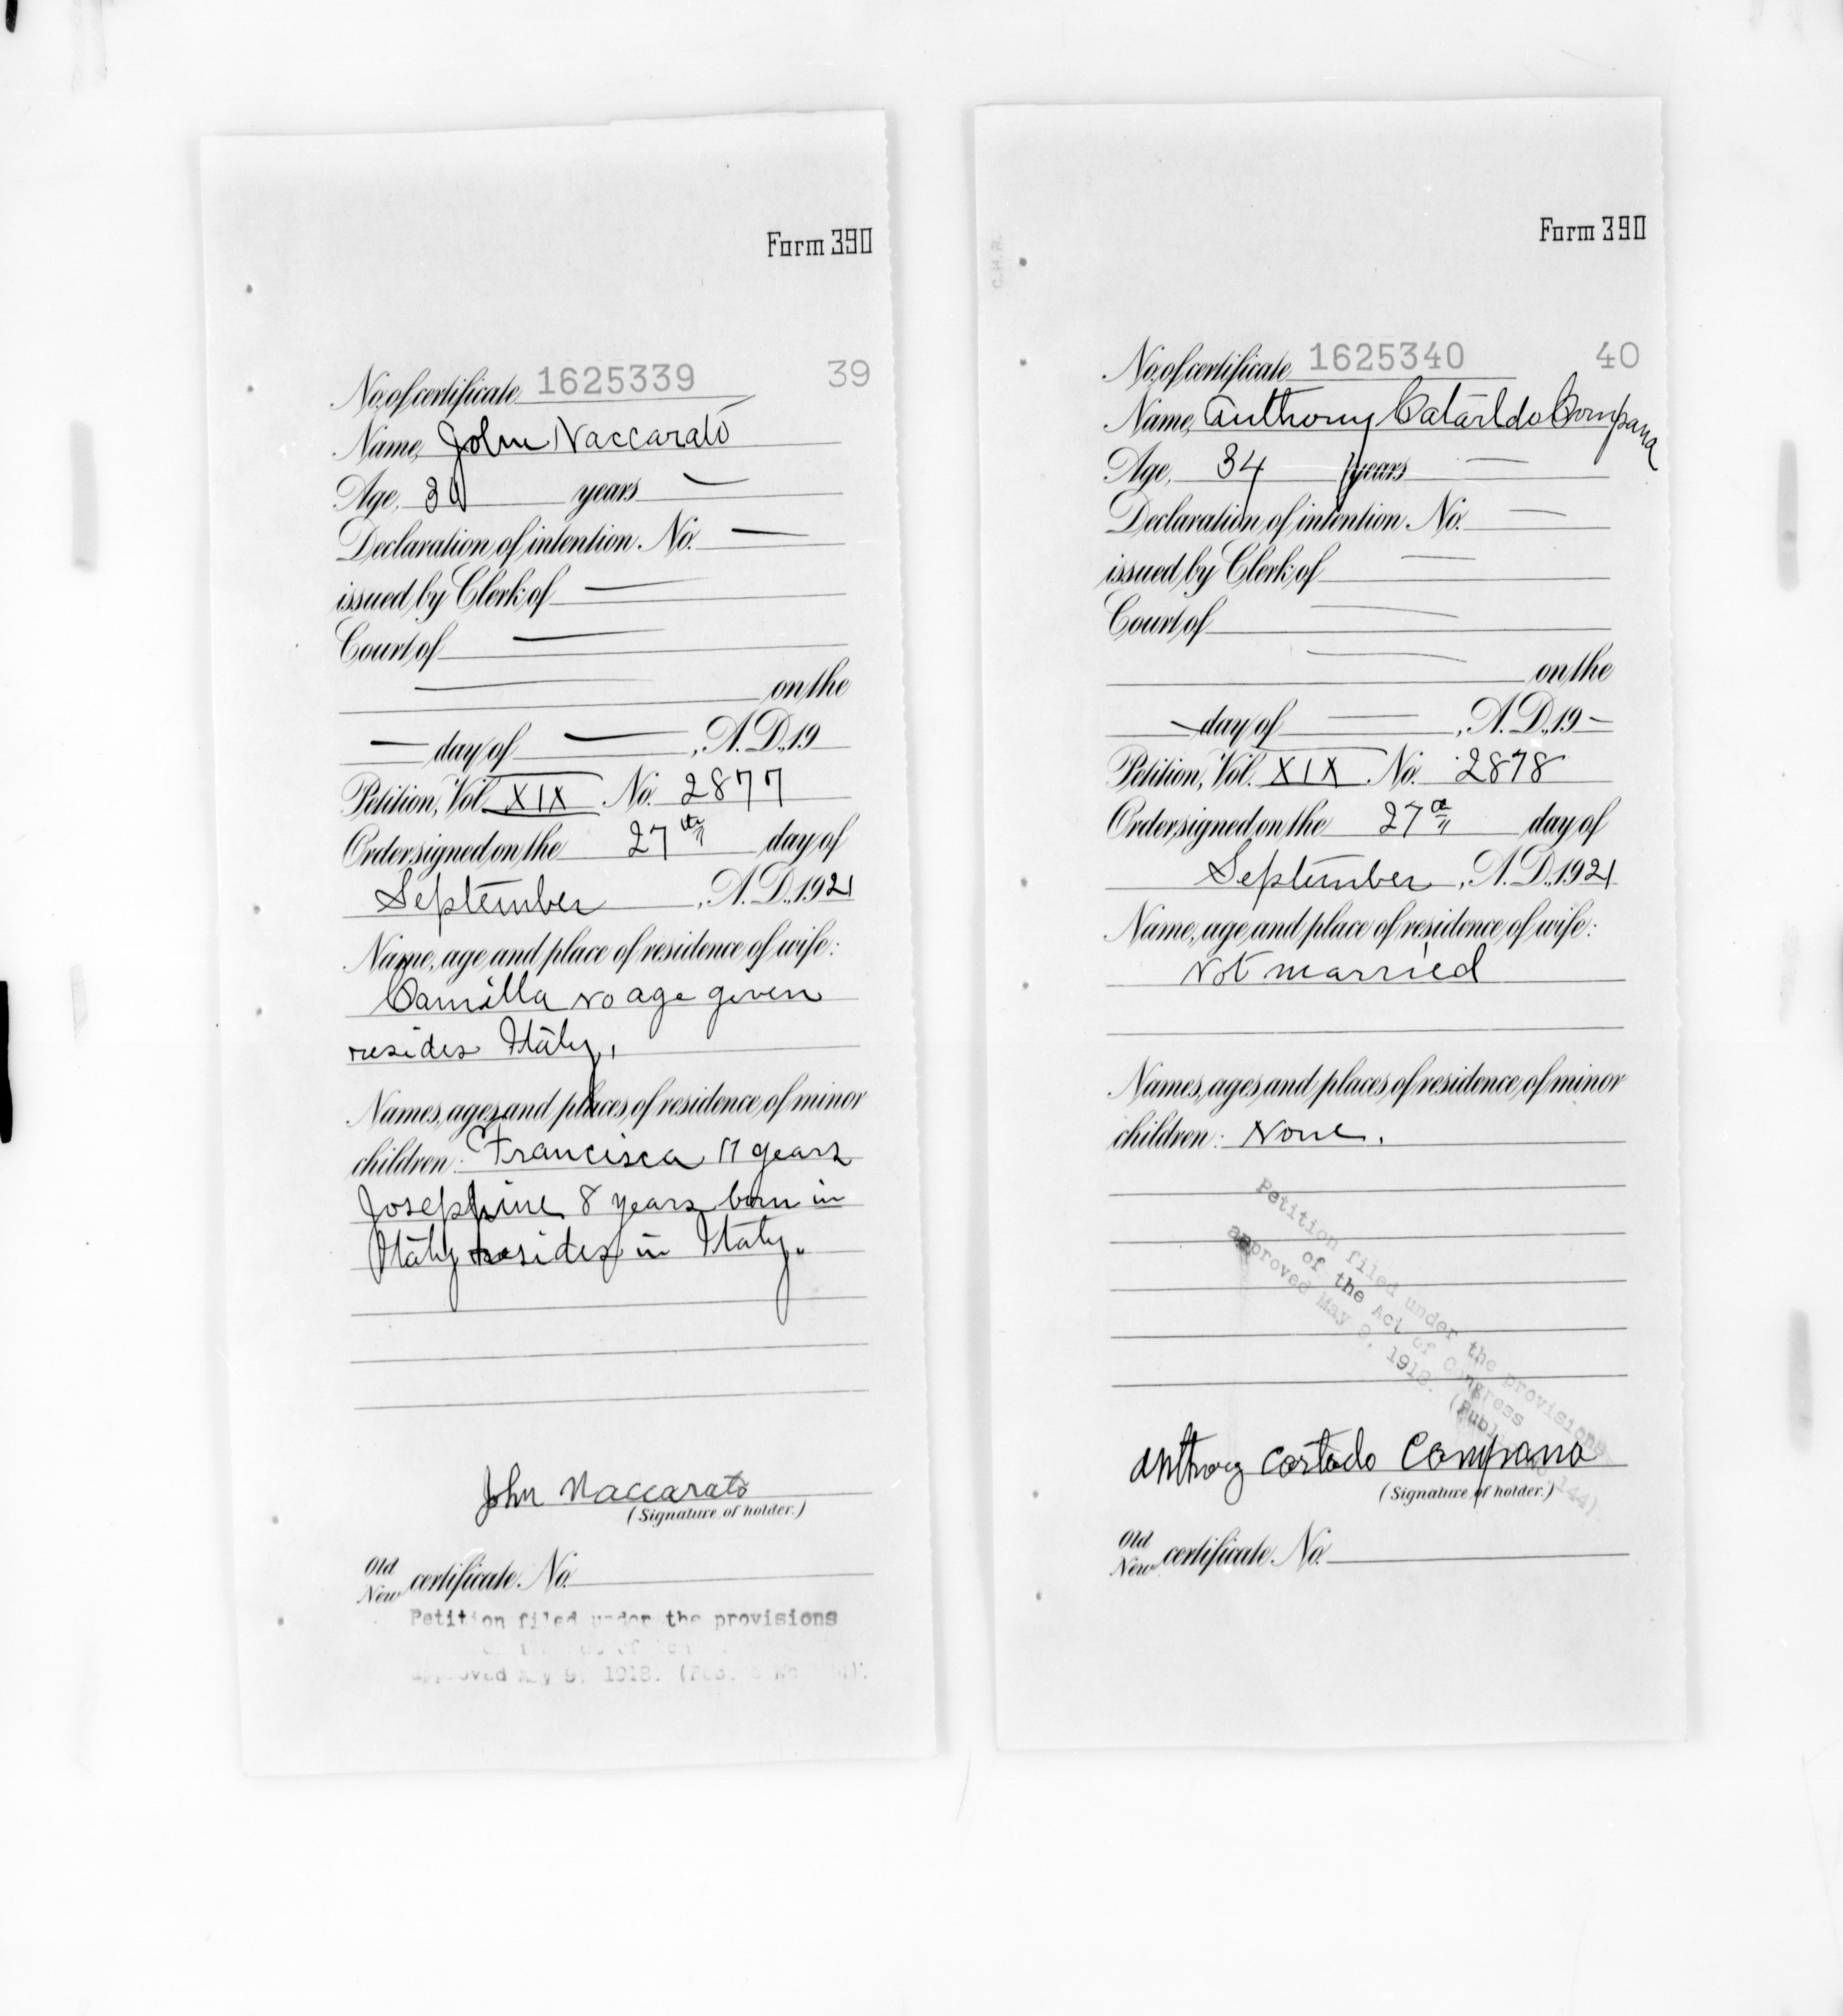 Form 390
No. of certificate 1625339 39
Name, John Naccarato
Age, years —
Declaration of intention No. —
issued by Clerk of —
Court of —
— on the
— day of —, A. D., 19
Petition, Vol. XIX No. 2877
Order signed on the 27th day of
September, A. D., 1921
Name, age and place of residence of wife:
Camilla No age given
resides Italy,
Names, ages and places of residence of minor
children: Francisca 11 years
Josephine 8 years born in
Italy resides in Italy.
John Naccarato
(Signature of holder.)
Old
New certificate No.
Petition filed under the provisions
approved May 9, 1918.
Form 390
C.H.R.
No. of certificate 1625340 40
Name, Anthony Cataldo Compana
Age, 34 years —
Declaration of intention No. —
issued by Clerk of —
Court of —
— on the
— day of —, A. D., 19 —
Petition, Vol. XIX No. 2878
Order signed on the 27th day of
September, A. D., 1921
Name, age and place of residence of wife:
Not married
Names, ages and places of residence of minor
children: None.
Petition filed under the provisions
of the Act of Congress
approved May 9, 1918. (Public No. 144).
Anthony Cortado Compano
(Signature of holder.)
Old
New certificate No.